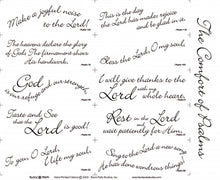 Make a joyful noise
to the Lord!
The heavens declare the glory
of God. The firmament shows
his Handiwork.
God our strength,
is our refuge and
Taste and See
that the
Lord is good!
To you O Lord,
I lift my soul.
This is the day
the Lord has made; rejoice
and be glad in it.
Bless the Lord, O my soul.
I will give thanks to the
Lord with my
whole heart.
Rest in the Lord
wait patiently for Him.
Sing to the Lord a new song
He has done wondrous things
The Comfort of Psalms